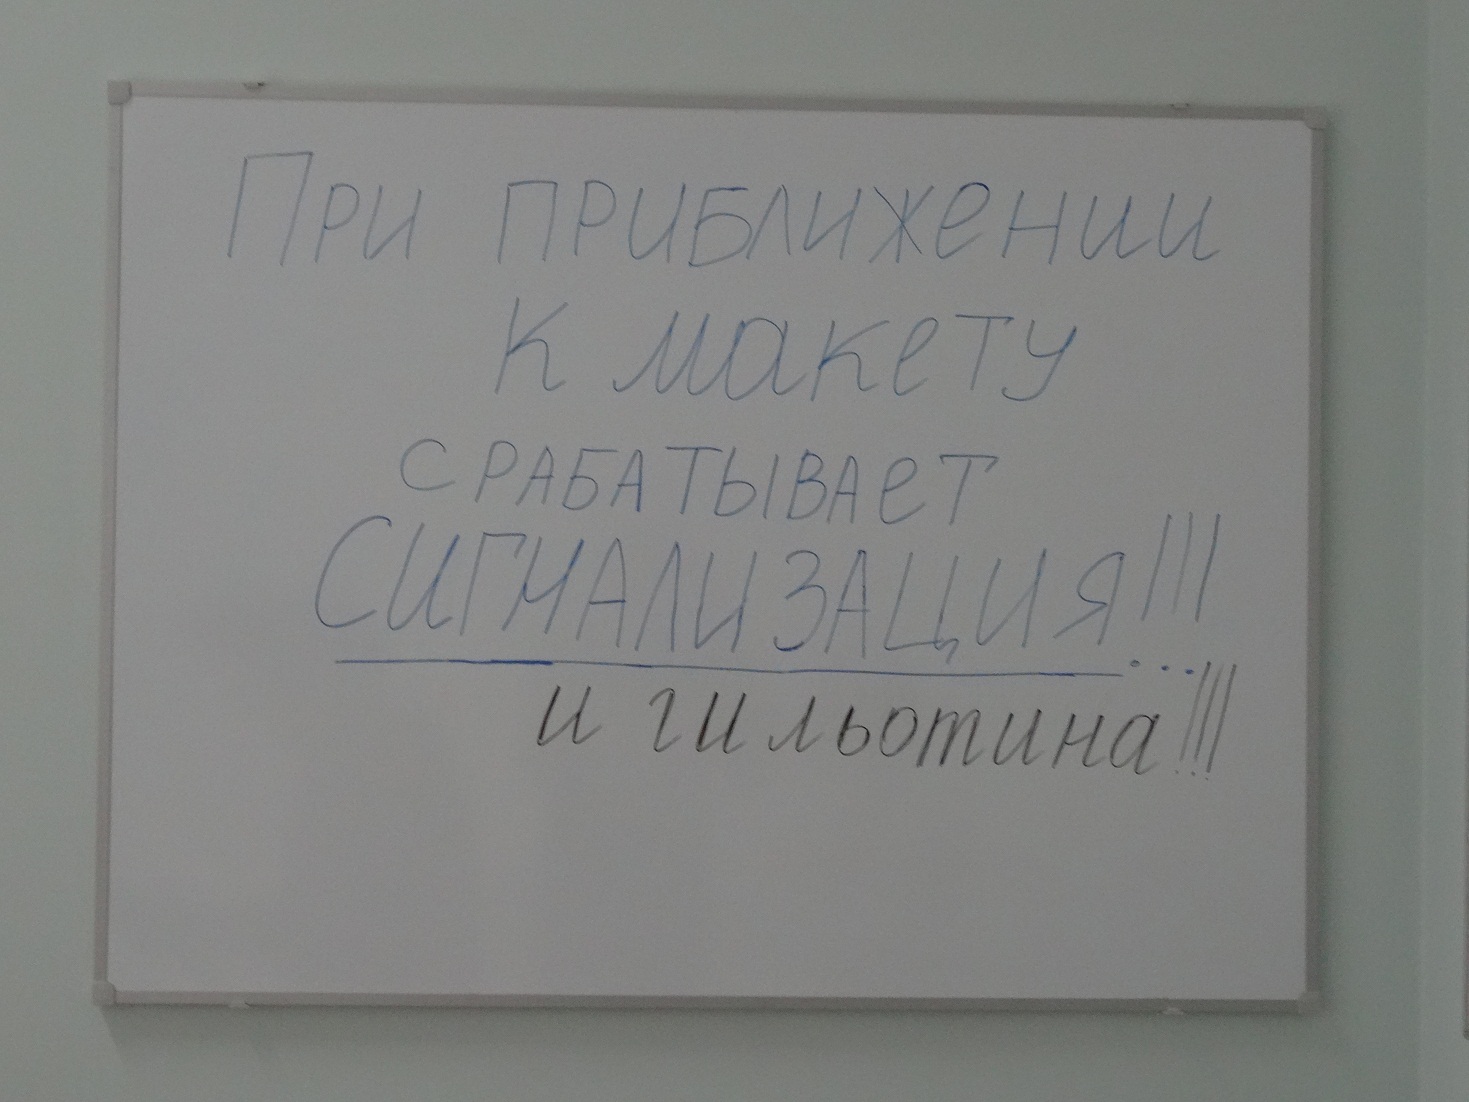 При приближении
к макету
срабатывает
СИГНАЛИЗАЦИЯ!!!
...
и гильотина!!!